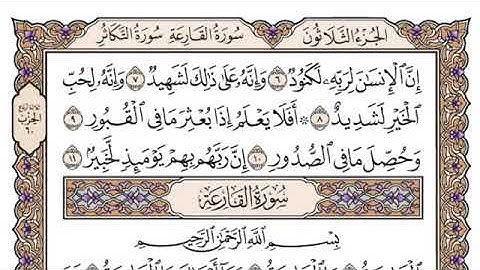 الجزء الثلاثون سورة القارعة سورة التكاثر
إِنَّ ٱلْإِنسَٰنَ لِرَبِّهِۦ لَكَنُودٌ ٦ وَإِنَّهُۥ عَلَىٰ ذَٰلِكَ لَشَهِيدٌ ٧ وَإِنَّهُۥ لِحُبِّ
ٱلْخَيْرِ لَشَدِيدٌ ٨ ۞ أَفَلَا يَعْلَمُ إِذَا بُعْثِرَ مَا فِى ٱلْقُبُورِ ٩
وَحُصِّلَ مَا فِى ٱلصُّدُورِ ١٠ إِنَّ رَبَّهُم بِهِمْ يَوْمَئِذٍ لَّخَبِيرٌۢ ١١
سُورَةُ ٱلْقَارِعَةِ
بِسْمِ ٱللَّهِ ٱلرَّحْمَٰنِ ٱلرَّحِيمِ
الحزب
٦٠